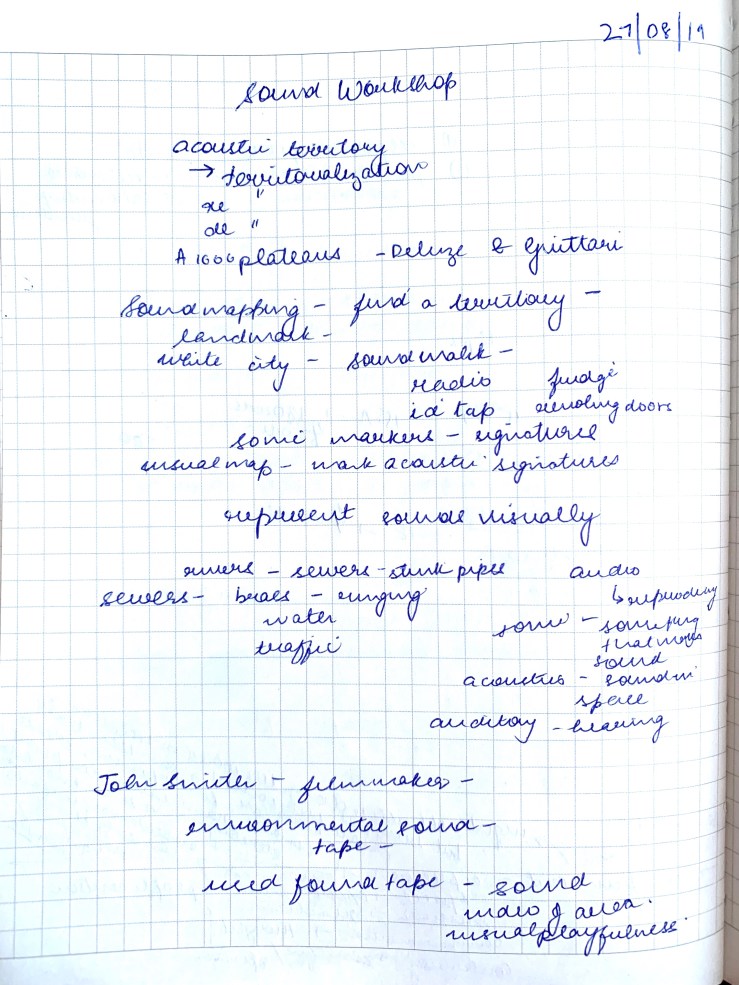 27/08/19
Sound Workshop
acoustic territory
→ territorialization
re "
de "
A 1000 plateaus - Deluze & Guittari
Sound mapping - find a territory -
landmark -
white city - soundmark -
radio fridge
id tap revolving doors
sonic markers - signatures
visual map - mark acoustic signatures
represent sounds visually
rivers - sewers - stink pipes audio
sewers - birds - ringing ↳ reproducing
water sonic - something
traffic that makes
sound
acoustics - sound in
space
auditory - hearing
John Smith - filmmaker -
environmental sound -
tape -
used found tape - sound
of area.
visual playfulness.